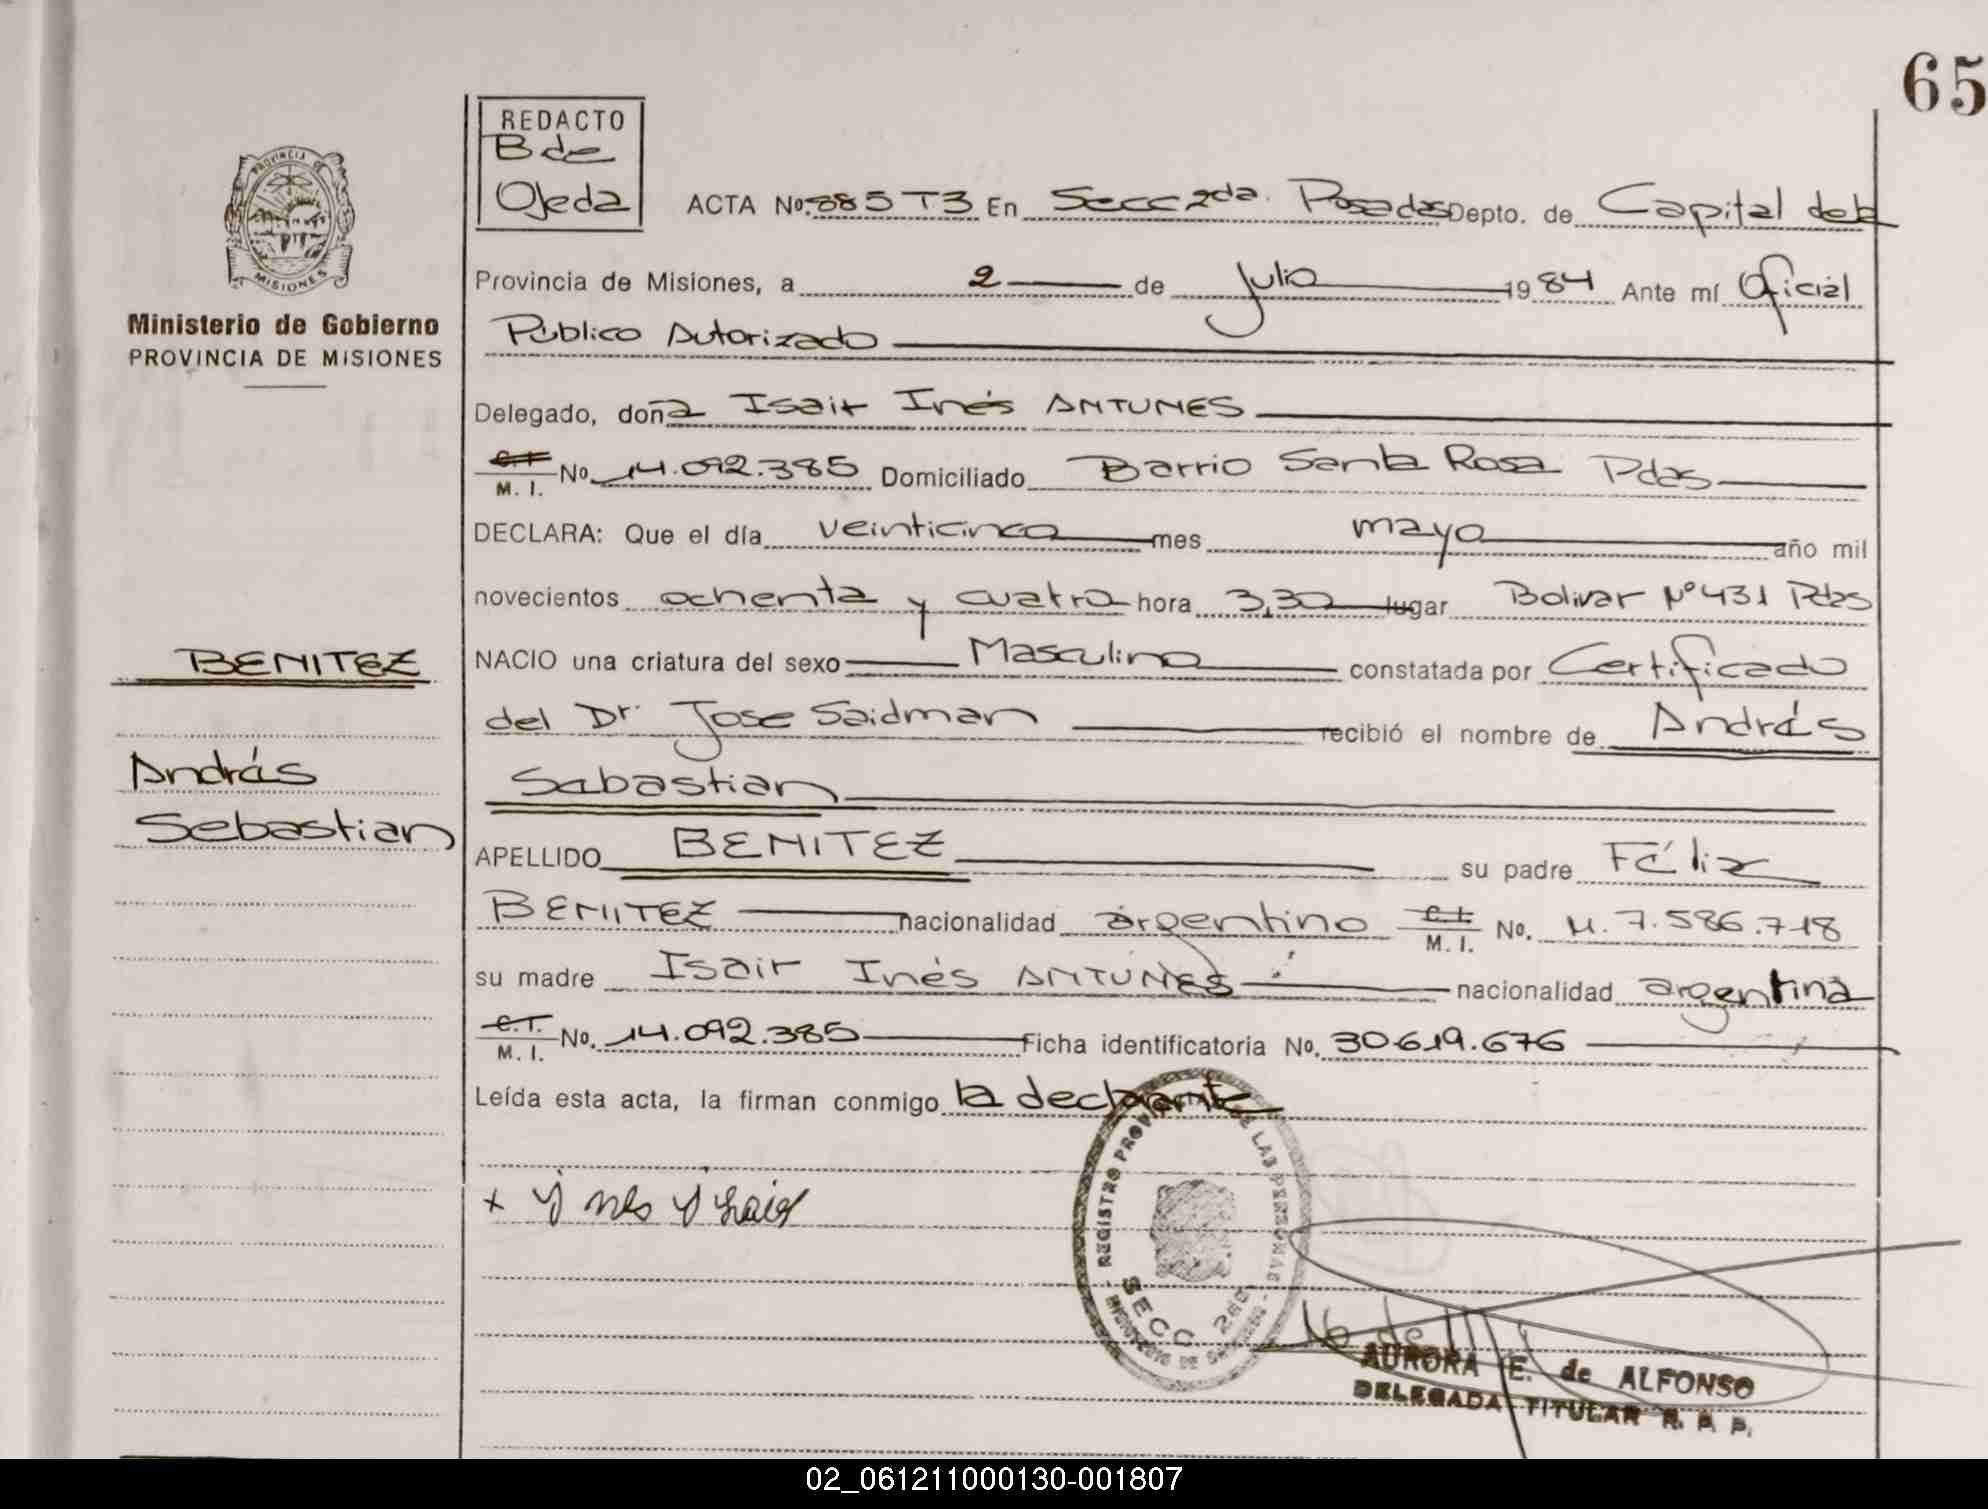 65
REDACTO
B de
Ojeda
ACTA No. 885 T3 En Secc 2da. Posadas Depto. de Capital de la
Provincia de Misiones, a 2 de Julio 1984 Ante mí Oficial
Público Autorizado
Delegado, doña Isair Inés ANTUNES
C.I. M. I. No. 14.092.385 Domiciliado Barrio Santa Rosa Pdas
DECLARA: Que el día veinticinco mes mayo año mil
novecientos ochenta y cuatro hora 3,30 lugar Bolivar Nº 431 Pdas
NACIO una criatura del sexo Masculino constatada por Certificado
del Dr. Jose Saidman recibió el nombre de Andrés
Sebastian
APELLIDO BENITEZ su padre Félix
BENITEZ nacionalidad argentino C.I. M. I. No. M. 7.586.718
su madre Isair Inés ANTUNES nacionalidad argentina
C.I. M. I. No. 14.092.385 Ficha identificatoria No. 30.619.676
Leída esta acta, la firman conmigo la declarante
PROVINCIA DE
MISIONES
Ministerio de Gobierno
PROVINCIA DE MISIONES
BENITEZ
Andrés
Sebastian
REGISTRO PROVINCIAL DE LAS PERSONAS
SECC. 2da
MINISTERIO DE GOBIERNO
AURORA E. de ALFONSO
DELEGADA TITULAR R. P. P.
02_061211000130-001807